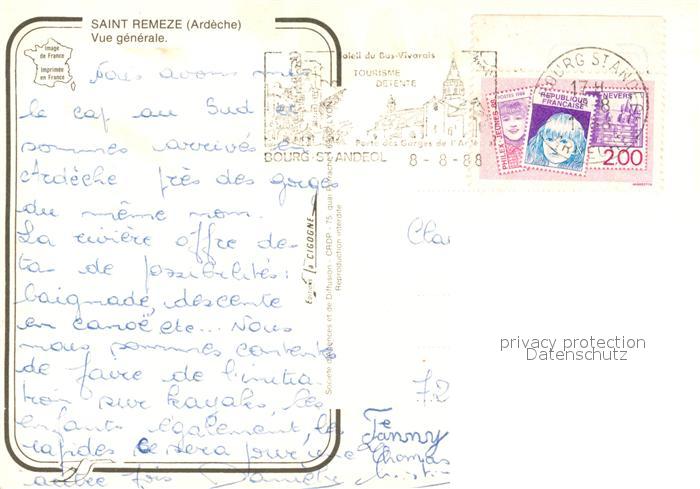 SAINT REMEZE (Ardèche)
Vue générale.
image
de France
Imprimée
en France
Soleil du Bas-Vivarais
TOURISME
DETENTE
Porte des Gorges de l'Ardèche
BOURG-ST-ANDEOL 8-8-88
BOURG ST AND
17 H
8
PHILEX-JEUNES 88
POSTES 1988
REPUBLIQUE
FRANCAISE
NEVERS
2.00
Nous avons mis
le cap au Sud et
sommes arrivés en
Ardèche près des gorges
du même nom.
La rivière offre des
tas de possibilités :
baignade, descente
en canoë etc... Nous
nous sommes contentés
de faire de l'initia
tion sur kayaks, les
enfants également, les
rapides ce sera pour une
autre fois Danièle
Fanny
Thomas
Editions la CIGOGNE
Société d'Agences et de Diffusion - CRDP - 75, quai
Reproduction interdite
Clau
72
privacy protection
Datenschutz